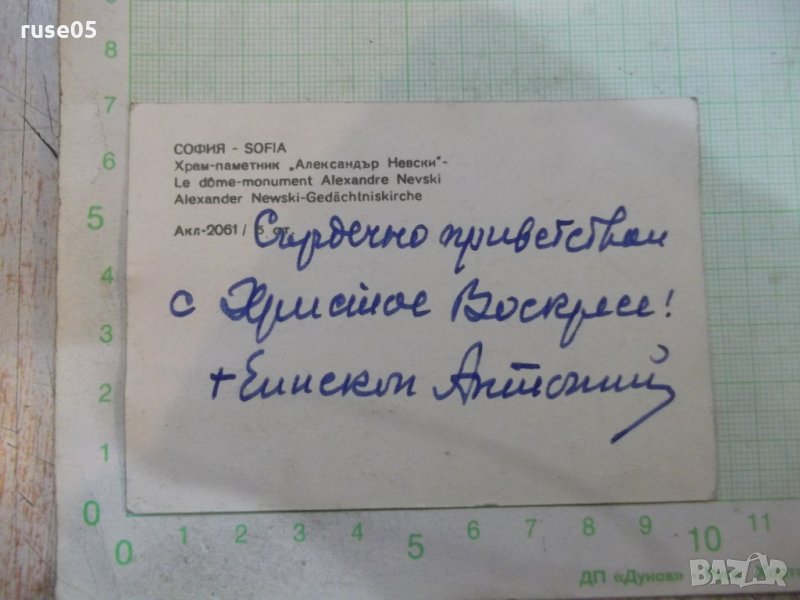 ruse05
СОФИЯ - SOFIA
Храм-паметник „Александър Невски"-
Le dôme-monument Alexandre Nevski
Alexander Newski-Gedächtniskirche
Акл-2061 / 5 ст.
Сърдечно приветствам
с Христос Воскресе!
+ Епископ Антоний
8
7
6
5
4
3
2
1
0
0 1 2 3 4 5 6 7 8 9 10 11
ДП «Дунав»
BAZAR